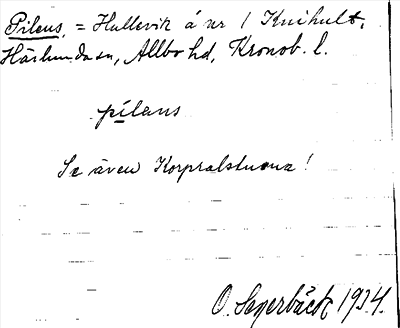 Pilens, = Hullevik å nr 1 Knihult,
Härlunda sn, Allbo hd, Kronob. l.
pilans
Se även Korpralstuona!
O. Segerbäck 1934.